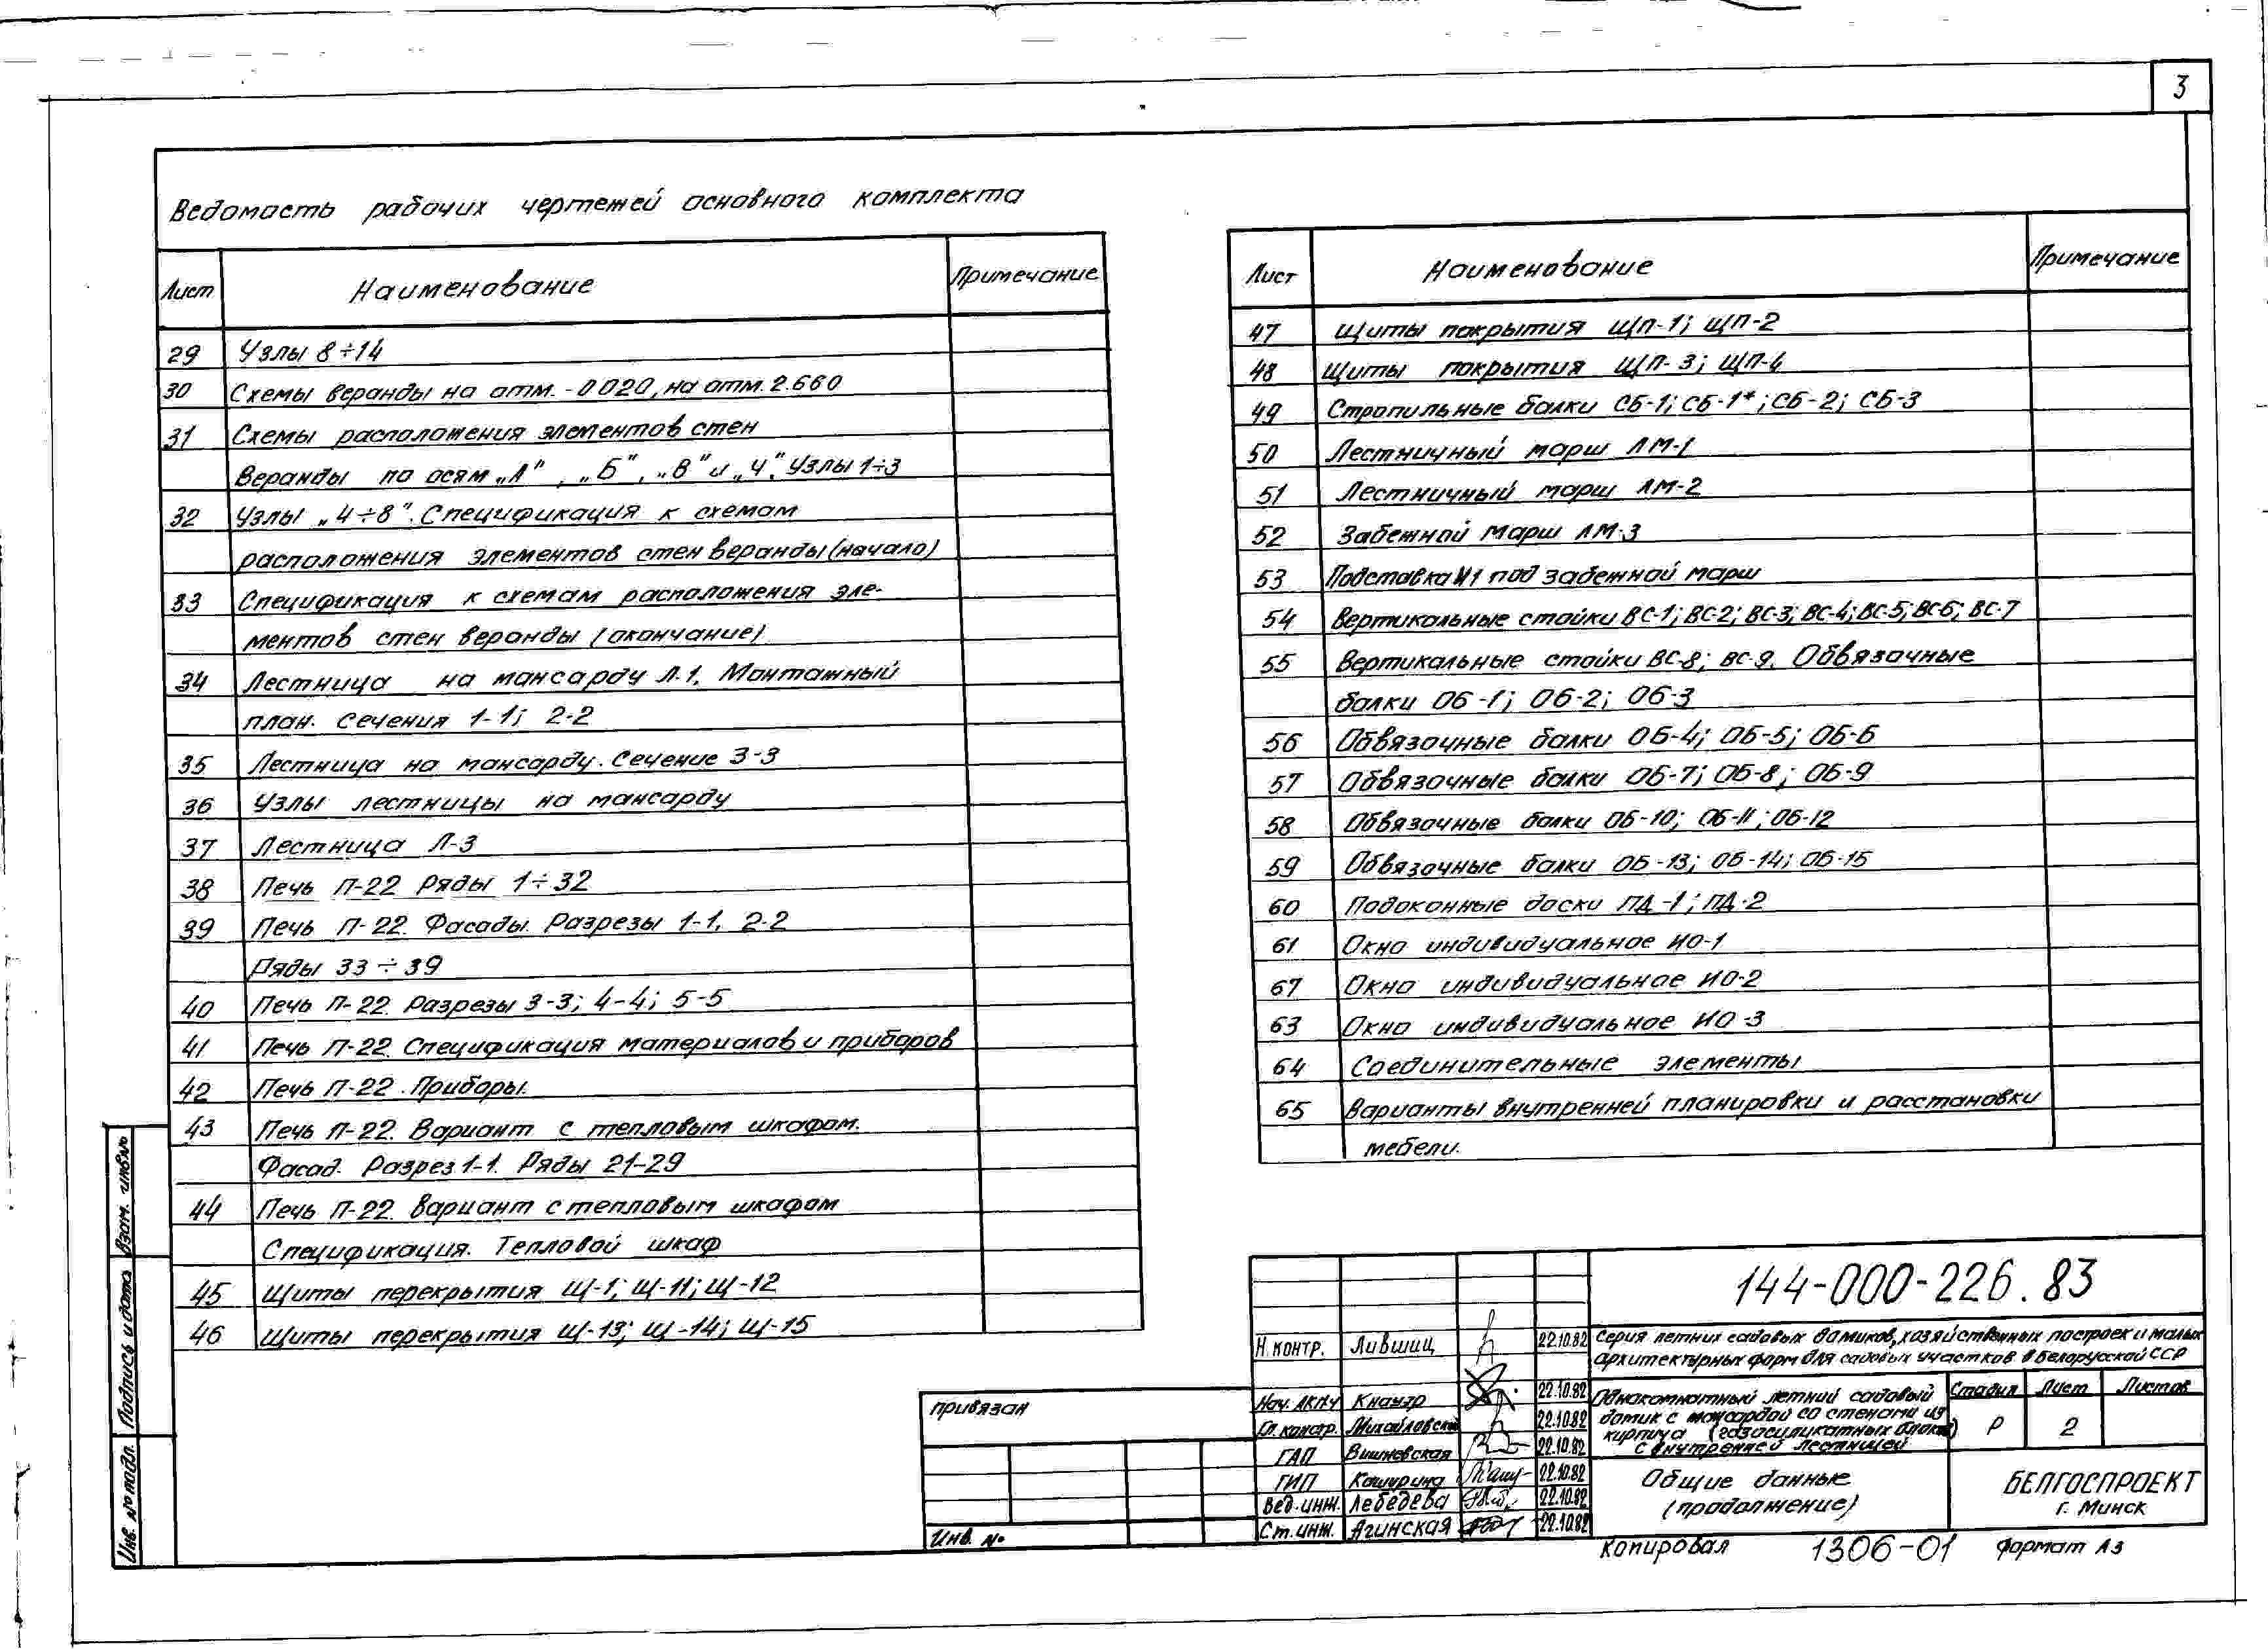 3
Ведомость рабочих чертежей основного комплекта
Лист Наименование Примечание
29 Узлы 8÷14
30 Схемы веранды на отм. -0020, на отм. 2.660
31 Схемы расположения элементов стен
веранды по осям „А", „Б", „В" и „4". Узлы 1÷3
32 Узлы „4÷8". Спецификация к схемам
расположения элементов стен веранды (начало)
33 Спецификация к схемам расположения эле-
ментов стен веранды (окончание)
34 Лестница на мансарду Л.1. Монтажный
план. Сечения 1-1; 2-2
35 Лестница на мансарду. Сечение 3-3
36 Узлы лестницы на мансарду
37 Лестница Л-3
38 Печь П-22 Ряды 1÷32
39 Печь П-22. Фасады. Разрезы 1-1, 2-2
Ряды 33÷39
40 Печь П-22. Разрезы 3-3; 4-4; 5-5
41 Печь П-22. Спецификация материалов и приборов
42 Печь П-22. Приборы.
43 Печь П-22. Вариант с тепловым шкафом.
Фасад. Разрез 1-1. Ряды 21-29
44 Печь П-22. Вариант с тепловым шкафом
Спецификация. Тепловой шкаф
45 Щиты перекрытия Щ-1; Щ-11; Щ-12
46 Щиты перекрытия Щ-13; Щ-14; Щ-15
Лист Наименование Примечание
47 Щиты покрытия ЩП-1; ЩП-2
48 Щиты покрытия ЩП-3; ЩП-4
49 Стропильные балки СБ-1; СБ-1*; СБ-2; СБ-3
50 Лестничный марш ЛМ-1
51 Лестничный марш ЛМ-2
52 Забежной марш ЛМ-3
53 Подставка №1 под забежной марш
54 Вертикальные стойки ВС-1; ВС-2; ВС-3; ВС-4; ВС-5; ВС6; ВС-7
55 Вертикальные стойки ВС-8; ВС-9. Обвязочные
балки ОБ-1; ОБ-2; ОБ-3
56 Обвязочные балки ОБ-4; ОБ-5; ОБ-6
57 Обвязочные балки ОБ-7; ОБ-8; ОБ-9
58 Обвязочные балки ОБ-10; ОБ-11; ОБ-12
59 Обвязочные балки ОБ-13; ОБ-14; ОБ-15
60 Подоконные доски ПД-1; ПД-2
61 Окно индивидуальное ИО-1
67 Окно индивидуальное ИО-2
63 Окно индивидуальное ИО-3
64 Соединительные элементы
65 Варианты внутренней планировки и расстановки
мебели.
Взам. инв.№
Подпись и дата
Инв. № подл.
привязан
Инв. №
Н.контр. Лившиц 22.10.82
Нач. АКПЧ Кнаузр 22.10.82
Гл. констр. Михайловский 22.10.82
ГАП Вишневская 22.10.82
ГИП Кашурина 22.10.82
Вед. инж. Лебедева 22.10.82
Ст. инж. Агинская 22.10.82
144-000-226.83
Серия летних садовых домиков, хозяйственных построек и малых
архитектурных форм для садовых участков в Белорусской ССР
Однокомнатный летний садовый
домик с мансардой со стенами из
кирпича (газосиликатных блоков)
с внутренней лестницей
Стадия Лист Листов
Р 2
Общие данные
(продолжение)
БЕЛГОСПРОЕКТ
г. Минск
Копировал 1306-01 формат А3